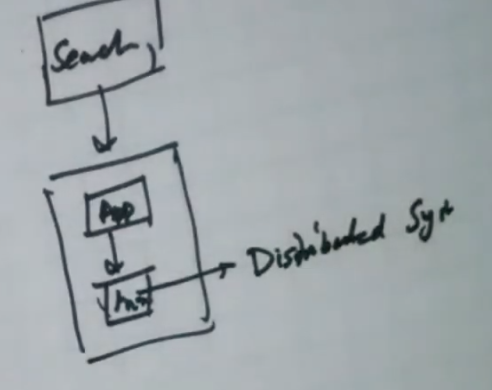 Search
App
Distributed Syst